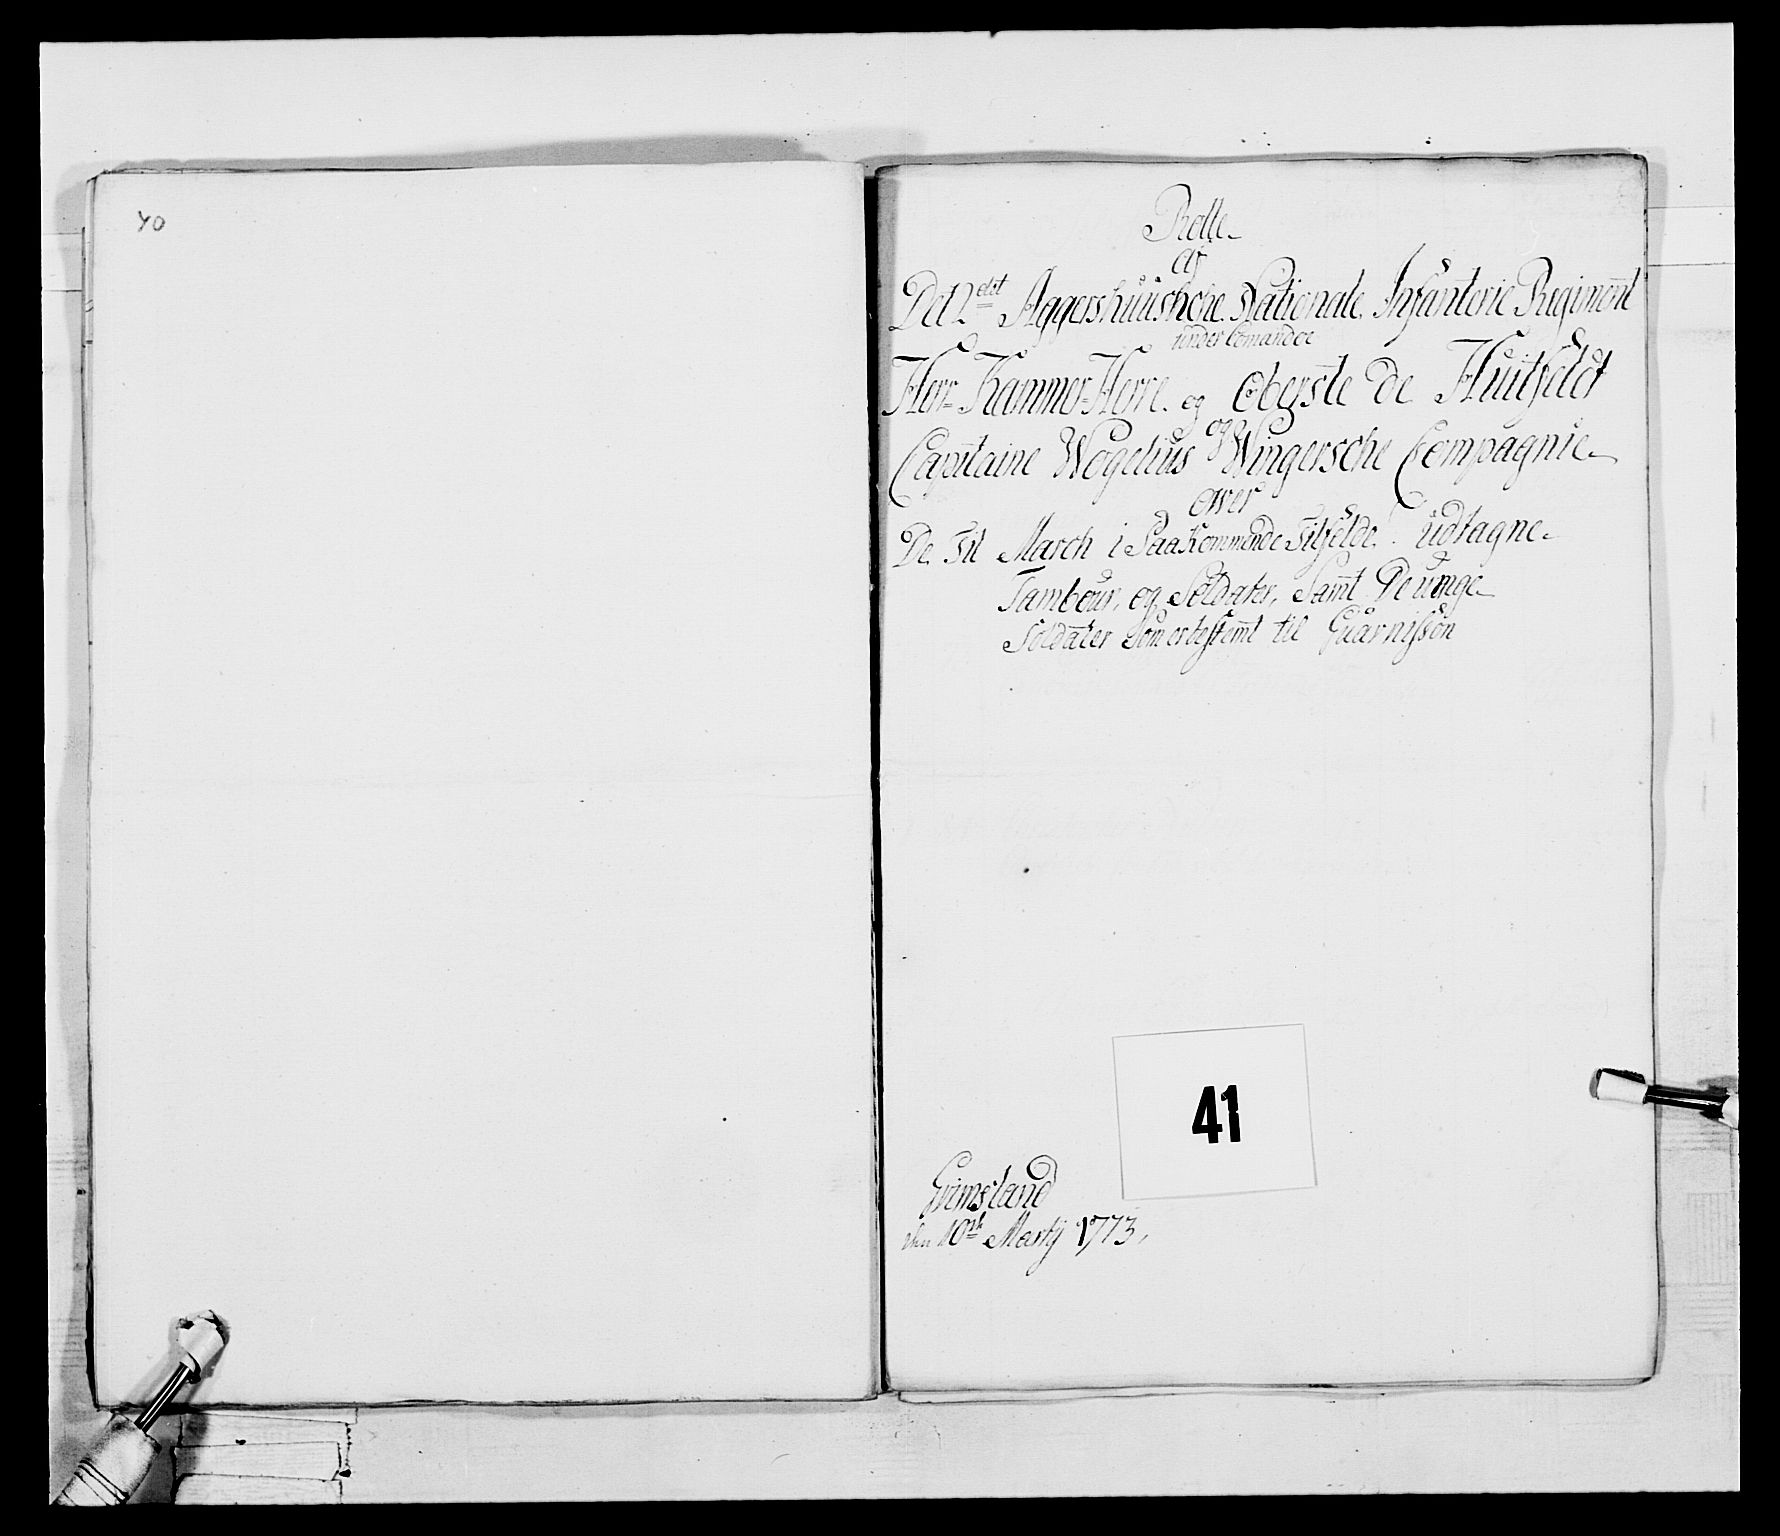 40
Rolle
af
Det 2det Aggershuusche Nationale Infanterie Regiment
under Comandoe
Herr Kammer-Herre og Oberste de Huitfeldt
Capitaine Wogelius og Wingersche Compagnie
over
De til March i Paakommende Tilfelde udtagne
Tambour, og Soldater, Samt De unge
Soldater Som er bestemt til Guarnisson
41
Grimsland
den 10de Marty 1773,